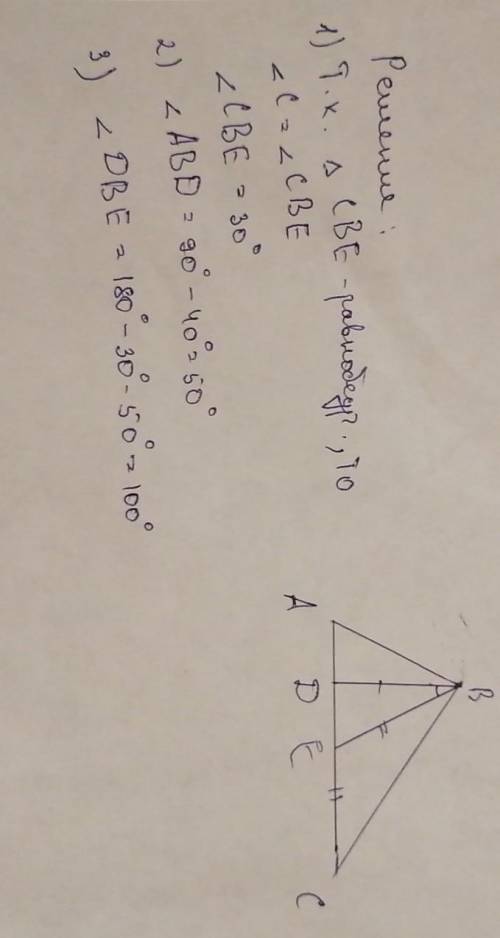 Решение:
1) Т.к. △ CBE - равнобедр., то
∠C = ∠CBE
∠CBE = 30°
2) ∠ABD = 90° - 40° = 50°
3) ∠DBE = 180° - 30° - 50° = 100°
B
A
D
E
C